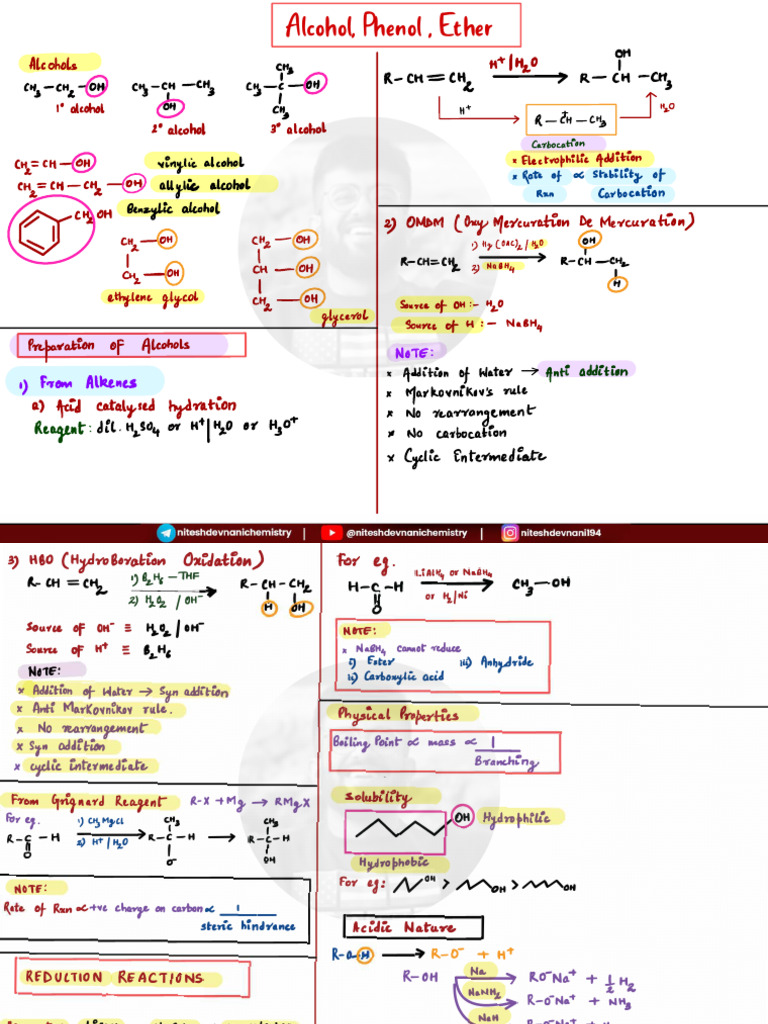 Alcohol, Phenol, Ether
Alcohols
CH₃-CH₂-OH
1° alcohol
CH₃-CH-CH₃
OH
2° alcohol
CH₃
CH₃-C-OH
CH₃
3° alcohol
CH₂=CH-OH vinylic alcohol
CH₂=CH-CH₂-OH allylic alcohol
CH₂OH Benzylic alcohol
CH₂-OH
CH₂-OH
ethylene glycol
CH₂-OH
CH-OH
CH₂-OH
glycerol
Preparation of Alcohols
1) From Alkenes
a) Acid catalysed hydration
Reagent: dil. H₂SO₄ or H⁺|H₂O or H₃O⁺
R-CH=CH₂ H⁺/H₂O R-CH-CH₃
OH
H⁺ R-CH-CH₃ H₂O
+
Carbocation
× Electrophilic Addition
× Rate of ∝ Stability of
Rxn Carbocation
2) OMDM (Oxy Mercuration De Mercuration)
R-CH=CH₂ 1) Hg(OAC)₂/H₂O
2) NaBH₄
OH
R-CH-CH₂
H
Source of OH:- H₂O
Source of H:- NaBH₄
NOTE:
× Addition of Water → Anti addition
× Markovnikov's rule
× No rearrangement
× No carbocation
× Cyclic Intermediate
niteshdevnanichemistry | @niteshdevnanichemistry | niteshdevnani194
3) HBO (HydroBoration Oxidation)
R-CH=CH₂ 1) B₂H₆-THF
2) H₂O₂/OH⁻
R-CH-CH₂
H OH
Source of OH⁻ ≡ H₂O₂/OH⁻
Source of H⁺ ≡ B₂H₆
NOTE:
× Addition of Water → Syn addition
× Anti Markovnikov rule.
× No rearrangement
× Syn addition
× cyclic intermediate
From Grignard Reagent R-X + Mg → RMgX
For eg.
R-C-H
O
1) CH₃MgCl
2) H⁺/H₂O
CH₃
R-C-H
O⁻
CH₃
R-C-H
OH
NOTE:
Rate of Rxn ∝ +ve charge on carbon ∝ 1
steric hindrance
REDUCTION REACTIONS
For eg.
H-C-H
O
LiAlH₄ or NaBH₄
or H₂/Ni
CH₃-OH
NOTE:
× NaBH₄ cannot reduce
i) Ester iii) Anhydride
ii) Carboxylic acid
Physical Properties
Boiling Point ∝ mass ∝ 1
Branching
Solubility
OH Hydrophilic
Hydrophobic
For eg: OH > OH > OH
Acidic Nature
R-O-H → R-O⁻ + H⁺
R-OH Na RO⁻Na⁺ + 1/2 H₂
NaNH₂ R-O⁻Na⁺ + NH₃
NaH